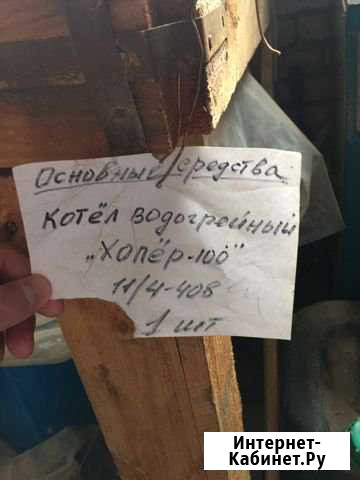 Основные средства
котёл водогрейный
„Хопёр-100"
11/4-408
1 шт
Интернет-
Кабинет.Ру